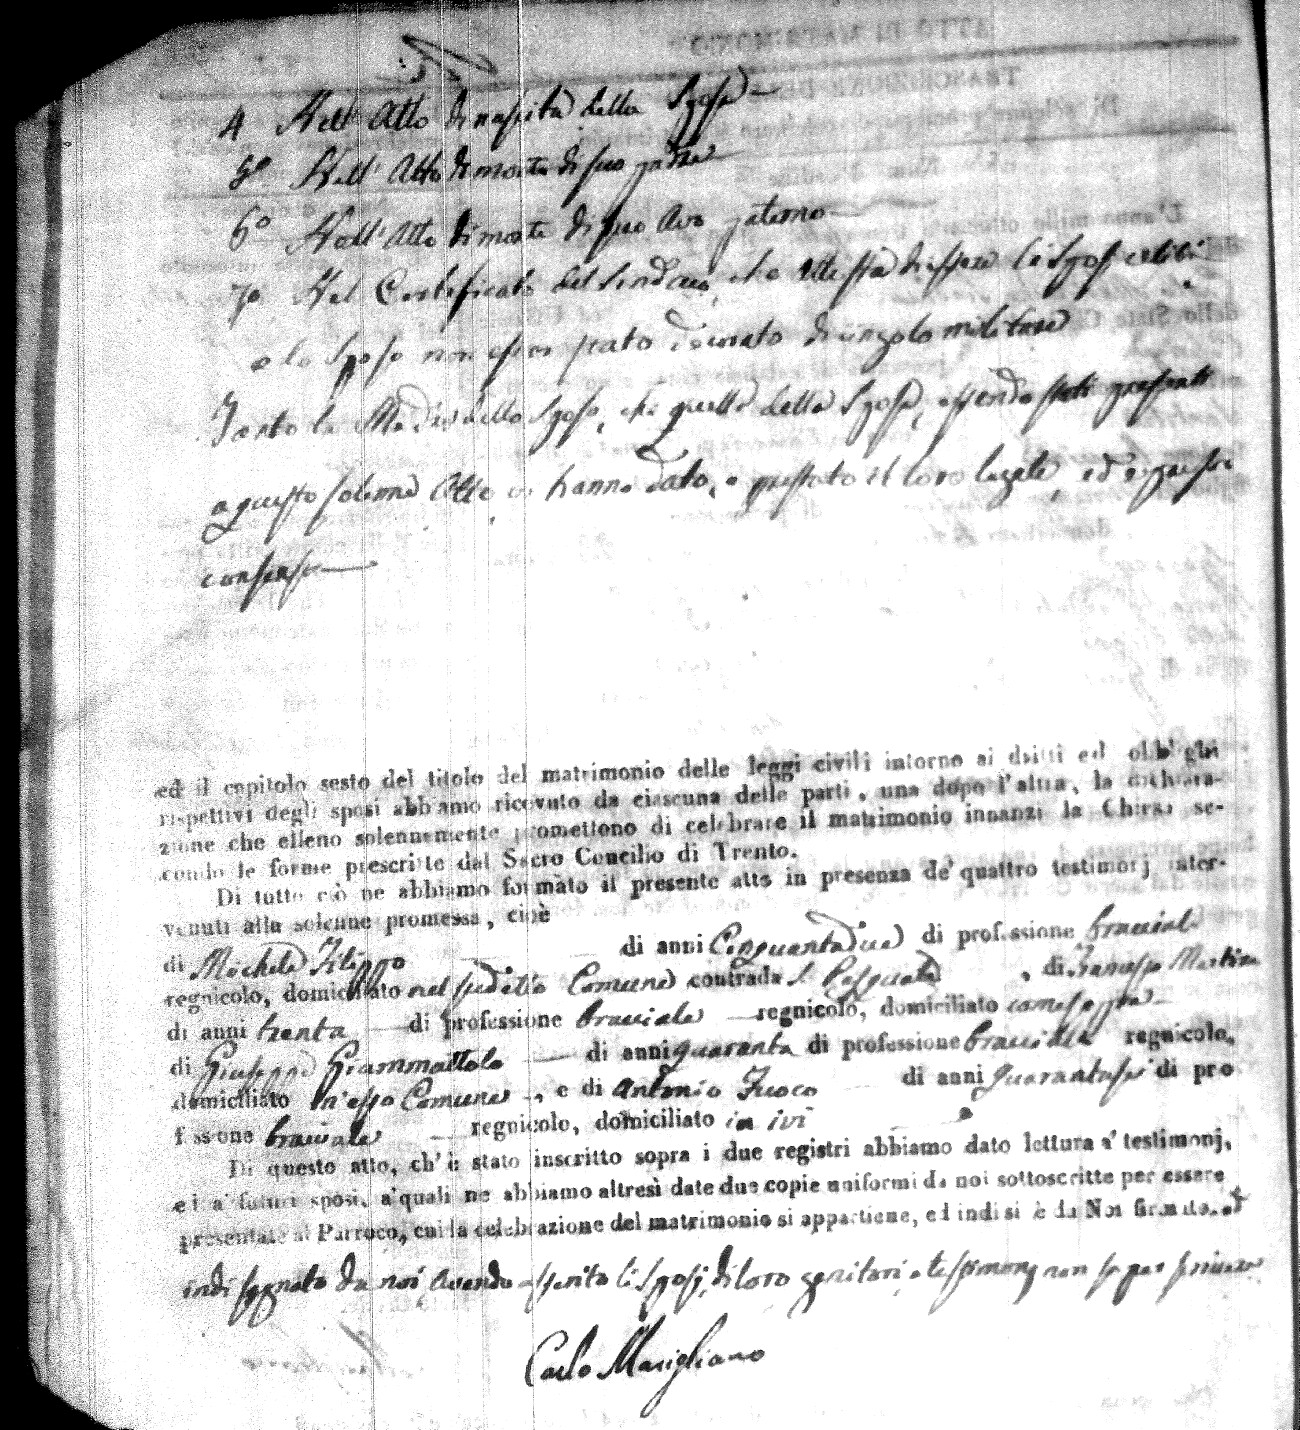 4 Nell' Atto di nascita della Sposa
5º Nell' Atto di morte di suo padre
6º Nell' Atto di morte di suo Avo paterno
7º Nel Certificato del Sindaco, che attesta di essere li Sposi celibi
e lo Sposo non essere stato di vincolo militare
Tanto la Madre dello Sposo, che quella della Sposa, essendo stati presenti
a questo solenne Atto vi hanno dato, e prestato il loro legale, ed
consenso
ed il capitolo sesto del titolo del matrimonio delle leggi civili intorno ai dritti ed obblighi
rispettivi degli sposi abbiamo ricevuto da ciascuna delle parti, una dopo l'altra, la dichiara-
zione che elleno solennemente promettono di celebrare il matrimonio innanzi la Chiesa se-
condo le forme prescritte dal Sacro Concilio di Trento.
Di tutto ciò ne abbiamo formato il presente atto in presenza de' quattro testimonj inter-
venuti alla solenne promessa, cioè
di Michele Filippo di anni Cinquantadue di professione bracciale
regnicolo, domiciliato nel sudetto Comune contrada S. Pasquale, di Francesco Martino
di anni trenta di professione bracciale regnicolo, domiciliato come sopra
di Giuseppe Grammattola di anni quaranta di professione bracciale regnicolo,
domiciliato in esso Comune, e di Antonio Fuoco di anni quarantasei di pro
fessione bracciale regnicolo, domiciliato in ivi
Di questo atto, ch'è stato inscritto sopra i due registri abbiamo dato lettura a' testimonj,
ed a' futuri sposi, a' quali ne abbiamo altresì date due copie uniformi da noi sottoscritte per essere
presentate al Parroco, cui la celebrazione del matrimonio si appartiene, ed indi si è da Noi firmato. ed
indi segnato da noi avendo asserito li Sposi, di loro genitori e testimonj non saper scrivere
Carlo Marigliano